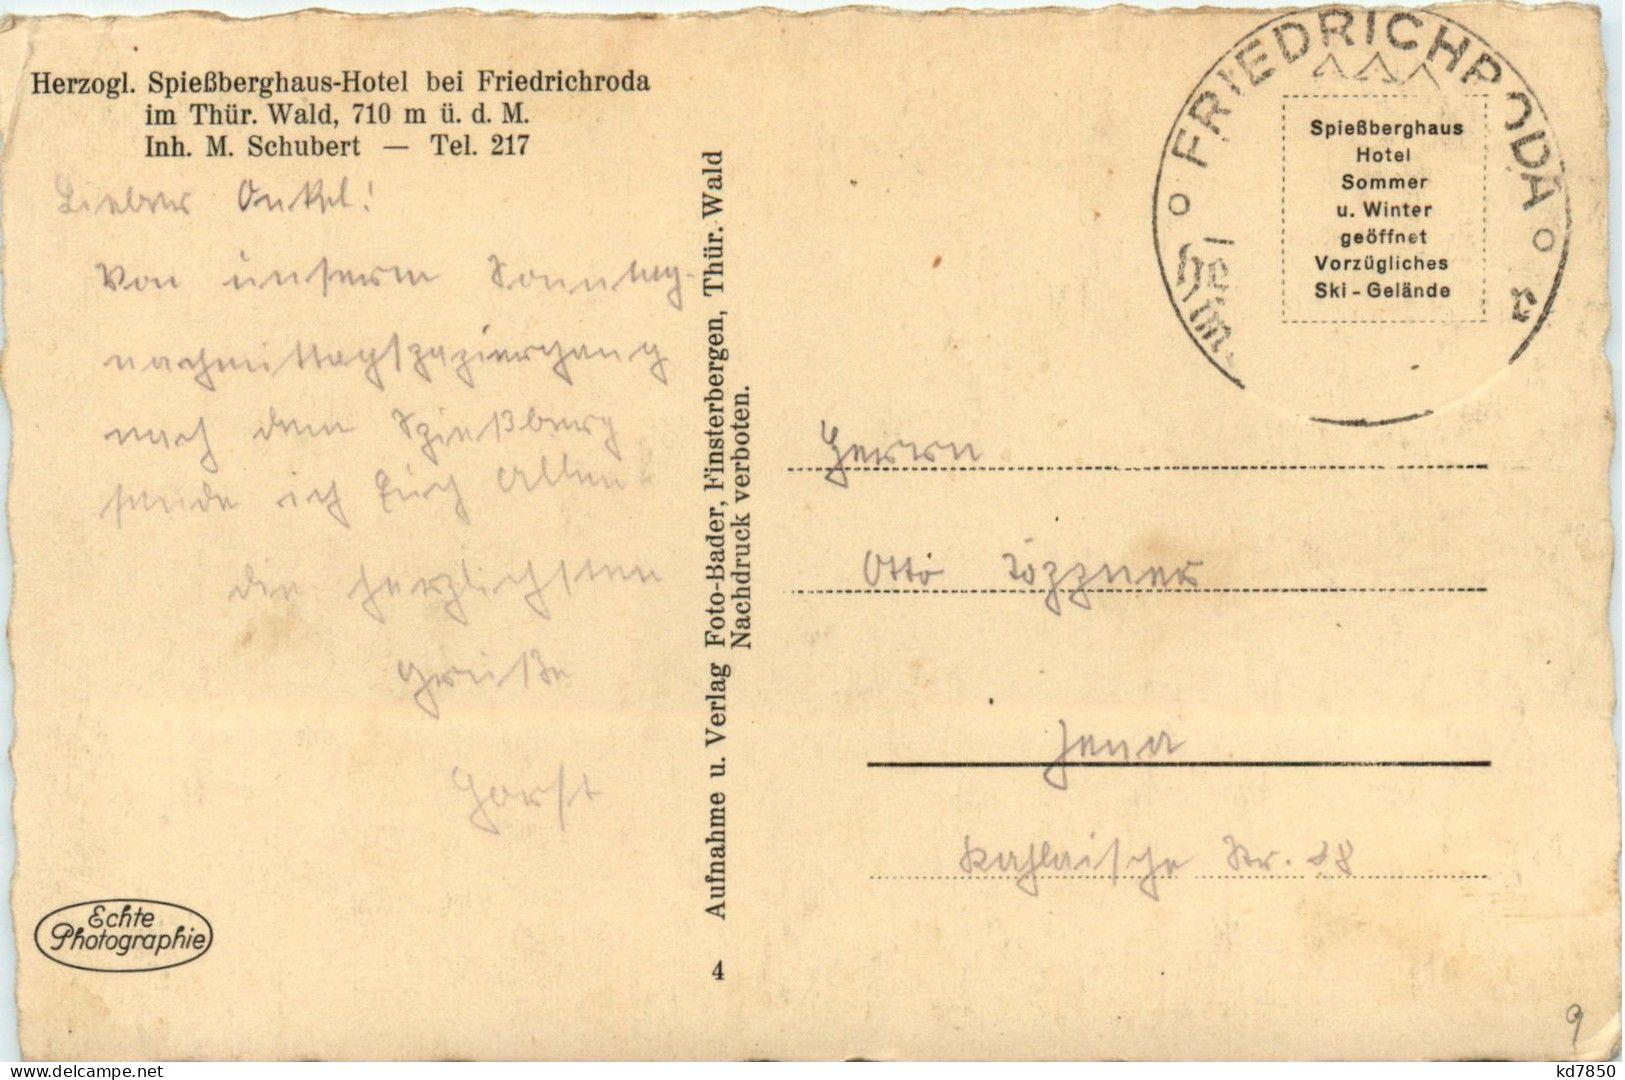 Herzogl. Spießberghaus-Hotel bei Friedrichroda
im Thür. Wald, 710 m ü. d. M.
Inh. M. Schubert — Tel. 217
Lieber Onkel!
Von unserm Sonntag-
nachmittagsspaziergang
nach dem Spießberg
sende ich Euch Allen
die herzlichsten
Grüße
Horst
Echte
Photographie
Aufnahme u. Verlag Foto-Bader, Finsterbergen, Thür. Wald
Nachdruck verboten.
4
FRIEDRICHRODA
Spießberghaus
Hotel
Sommer
u. Winter
geöffnet
Vorzügliches
Ski-Gelände
Herrn
Otto
Jena
Kahlaische Str. 28
9
kd7850